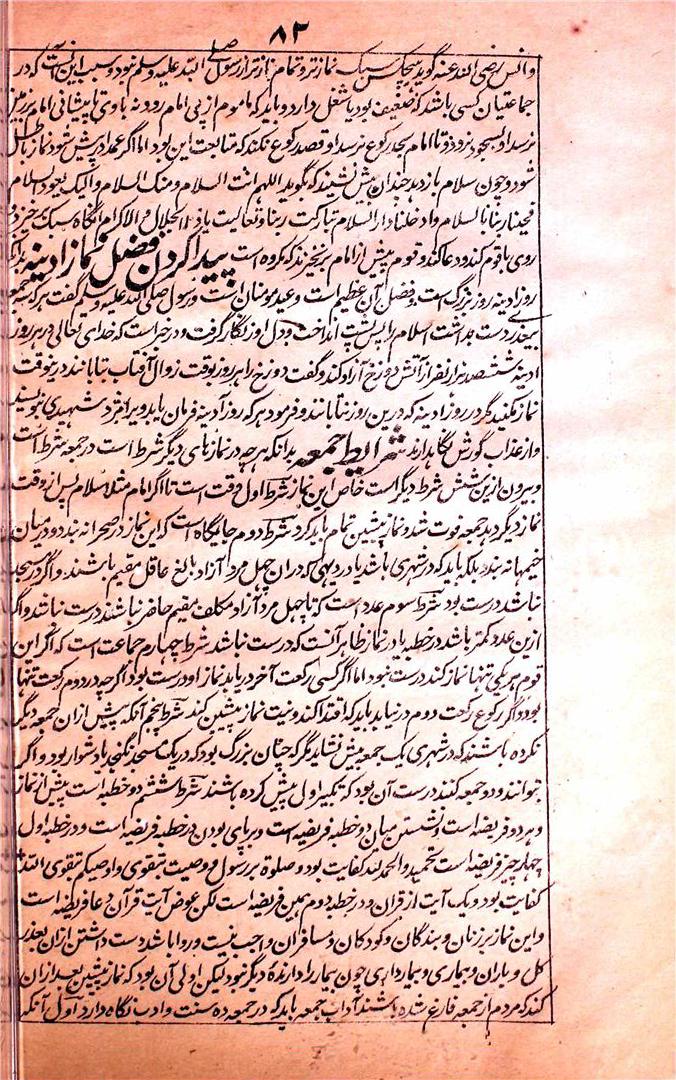 ۸۳
و انس رضی الله عنه گوید هیچکس سبک نمازتر و تمام نمازتر از رسول صلی الله علیه وسلم نبود و سبب این آنست که در
جماعتیان کسی باشد که ضعیف بود یا شغلی دارد و باید که ماموم از پی امام رود نه باوی تا پیشانی امام بر زمین
نرسد او بسجود نرود و تا امام بحد رکوع نرسد او قصد رکوع نکند که متابعت این بود اما اگر عمدا در پیش شود نماز باطل
شود و چون سلام باز دهد چندان بیش ننشیند که بگوید اللهم انت السلام و منک السلام و الیک یعود السلام
فحینا ربنا بالسلام و ادخلنا دار السلام تبارکت ربنا و تعالیت یا ذا الجلال و الاکرام آنگاه سبک برخیزد و
روی باقوم کند و دعا کند و قوم پیش از امام برنخیزند که مکروه است پیدا کردن فضل نماز ادینه بدانکه
روز ادینه روز بزرگ است و فضل آن عظیم است و عید مومنان است و رسول صلی الله علیه وسلم گفت هر که سه جمعه
بیعذر دست بداشت اسلام را پس پشت انداخت و دل او زنگار گرفت و در خبر است که خدای تعالی در هر روز
ادینه ششصد هزار نفر از آتش دوزخ آزاد کند و گفت دوزخ را هر روز بوقت زوال آفتاب بتابانند درین وقت
نماز مکنید مگر در روز ادینه که درین روز نتابانند و فرمود هر که روز آدینه فرمان یابد ویرا مزد شهیدی بنویسند
و از عذاب گورش نگاهدارند شرایط جمعه بدانکه هرچه در نمازهای دیگر شرط است در جمعه شرط است
و بیرون ازین شش شرط دیگر است خاص این نماز شرط اول وقت است تا اگر امام مثلا سلام پس از وقت
نماز دیگر دهد جمعه فوت شد و نماز پیشین تمام باید کرد شرط دوم جایگاه است که این نماز در صحرا نه بندد و در میان
خیمها نه بندد بلکه باید که در شهری باشد یا در دیهی که دران چهل مرد آزاد بالغ عاقل مقیم باشند و اگر در مسجد
نباشد درست بود شرط سوم عدد است که تا چهل مرد آزاد مکلف مقیم حاضر نباشند درست نباشد و اگر
ازین عدد کمتر باشد در خطبه یا در نماز ظاهر آنست که درست نباشد شرط چهارم جماعت است که اگر این
قوم هر یکی تنها نماز کند درست نبود اما اگر کسی رکعت آخر دریابد نماز او درست بود اگرچه در دوم رکعت تنها
بود و اگر رکوع رکعت دوم درنیابد باید که اقتدا کند و نیت نماز پیشین کند شرط پنجم آنکه پیش ازان جمعه دیگر
نکرده باشند که در شهری یک جمعه بیش نشاید مگر که چنان بزرگ بود که در یک مسجد نگنجد یا دشوار بود و اگر
بتوانند و دو جمعه کنند درست آن بود که تکبیر اول پیش کرده باشند شرط ششم دو خطبه است پیش از نماز
و هر دو فریضه است و نشستن میان دو خطبه فریضه است و بر پای بودن در خطبه فریضه است و در خطبه اول
چهار چیز فریضه است تحمید و الحمد لله کفایت بود و صلوة بر رسول و وصیت بتقوی و اوصیکم بتقوی الله
کفایت بود و یک آیت از قرآن و در خطبه دوم همین فریضه است لکن عوض آیت قرآن دعا فریضه است
و این نماز بر زنان و بندگان و کودکان و مسافران واجب نیست و روا باشد دست داشتن ازان بعذر
گل و باران و بیماری و بیمارداری چون بیمار را دارنده دیگر نبود لیکن اولی آن بود که نماز پیشین بعد ازان
کند که مردم از جمعه فارغ شده باشند آداب جمعه باید که در جمعه ده سنت و ادب نگاه دارد اول آنکه